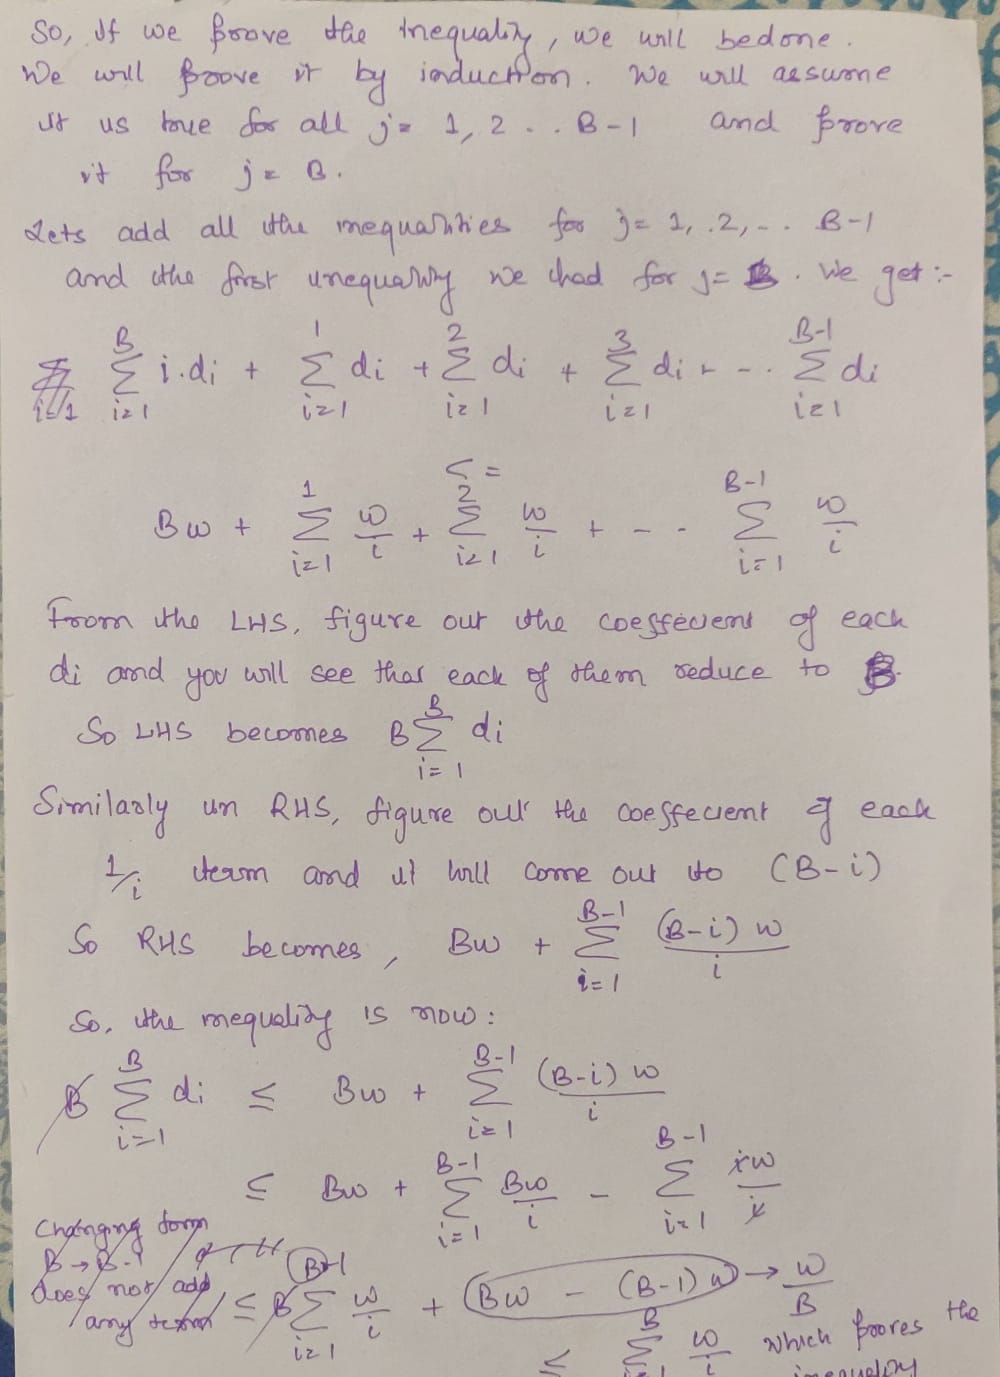 So, If we prove the inequality, we will be done.
We will prove it by induction. We will assume
it us true for all j = 1, 2 . . B-1 and prove
it for j = B.
Lets add all the inequalities for j = 1, 2, - . . B-1
and the first inequality we had for j = B. We get :-
Σ_{i=1}^{B} i.di + Σ_{i=1}^{1} di + Σ_{i=1}^{2} di + Σ_{i=1}^{3} di + - - . Σ_{i=1}^{B-1} di
< =
Bw + Σ_{i=1}^{1} w/i + Σ_{i=1}^{2} w/i + - - Σ_{i=1}^{B-1} w/i
From the LHS, figure out the coeffecient of each
di and you will see that each of them reduce to B.
So LHS becomes B Σ_{i=1}^{B} di
Similarly un RHS, figure out the coeffecient of each
1/i term and it will come out to (B-i)
So RHS becomes, Bw + Σ_{i=1}^{B-1} (B-i) w / i
So, the inequality is now :
B Σ_{i=1}^{B} di ≤ Bw + Σ_{i=1}^{B-1} (B-i) w / i
≤ Bw + Σ_{i=1}^{B-1} Bw/i - Σ_{i=1}^{B-1} iw/i
Changing from
B → B-1
does not add
any term
≤ B Σ_{i=1}^{B-1} w/i + (Bw - (B-1) w) → w/B
≤ Σ_{i=1}^{B} w/i which proves the
inequality